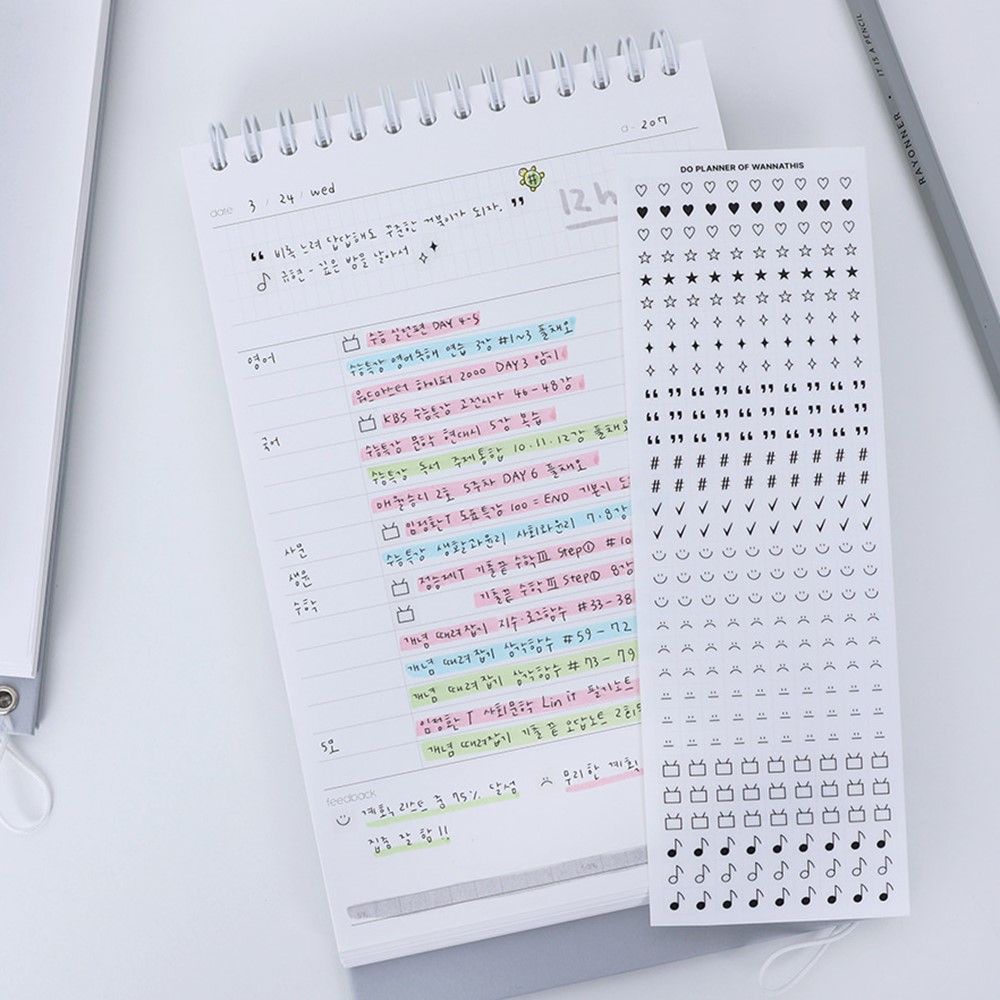 d- 207
date 3 / 24 / wed
12h
❝ 비록 느려 답답해도 꾸준한 거북이가 되자. ❞
♪ 규현 - 깊은 밤을 날아서
수능 실전편 DAY 4-5
영어 수능특강 영어독해 연습 3강 #1~3 풀채오
워드마스터 하이퍼 2000 DAY 3 암기
KBS 수능특강 고전시가 46-48강
국어 수능특강 문학 현대시 5강 복습
수능특강 독서 주제통합 10.11.12강 풀채오
매월승리 2호 5주차 DAY 6 풀채오
임정환T 도표특강 100 = END 기본기
사문 수능특강 생활과윤리 사회와윤리 7.8강
생윤 정승제T 기출끝 수학Ⅲ Step① #10
수학 기출끝 수학Ⅲ Step① 8강
개념 때려잡기 지수·로그함수 #33-38
개념 때려잡기 삼각함수 #59-72
개념 때려잡기 삼각함수 #73-79
임정환T 사회문화 Lin it 필기노트
5모 개념 때려잡기 기출끝 오답노트
feedback
계획 리스트 중 75% 달성
무리한 계획
집중 잘 함!!
DO PLANNER OF WANNATHIS
RAYONNER • IT IS A PENCIL